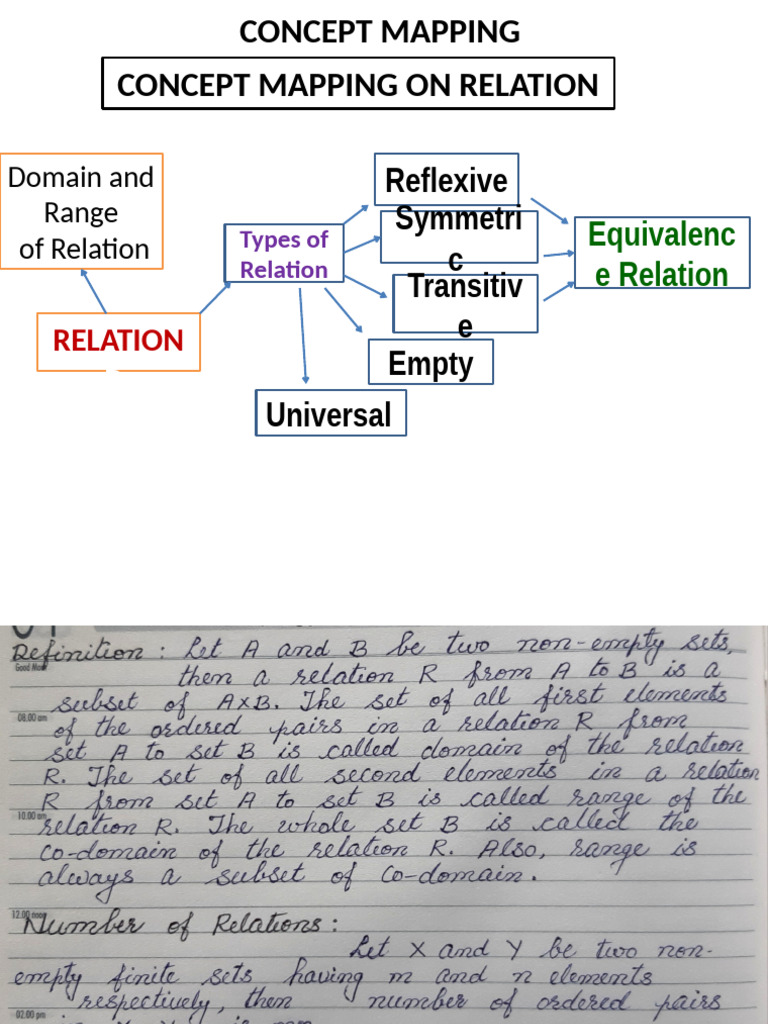 CONCEPT MAPPING
CONCEPT MAPPING ON RELATION
Domain and
Range
of Relation
RELATION
Types of
Relation
Reflexive
Symmetri
c
Transitiv
e
Empty
Universal
Equivalenc
e Relation
Definition : Let A and B be two non-empty sets,
Good Mor
then a relation R from A to B is a
subset of A×B. The set of all first elements
08.00 am
of the ordered pairs in a relation R from
set A to set B is called domain of the relation
R. The set of all second elements in a relation
R from set A to set B is called range of the
10.00 am
relation R. The whole set B is called the
co-domain of the relation R. Also, range is
always a subset of co-domain.
12.00 noon
Number of Relations :
Let X and Y be two non-
empty finite sets having m and n elements
respectively, then number of ordered pairs
02.00 pm